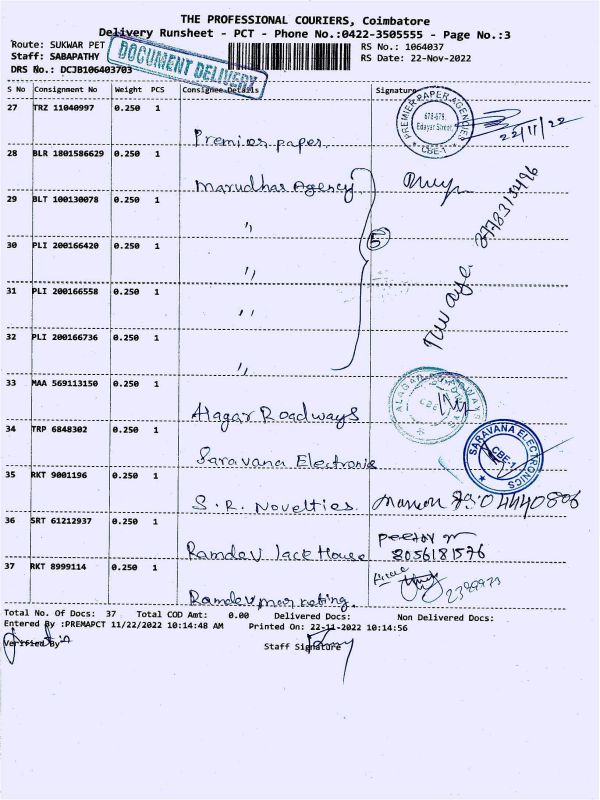 THE PROFESSIONAL COURIERS, Coimbatore
Delivery Runsheet - PCT - Phone No.:0422-3505555 - Page No.:3
Route: SUKWAR PET RS No.: 1064037
Staff: SABAPATHY RS Date: 22-Nov-2022
DRS No.: DCJB106403703
DOCUMENT DELIVERY
S No Consignment No Weight PCS Consignee Details Signature
27 TRZ 11040997 0.250 1
PREMIER PAPER AGENCIES
678-679,
Edayar Street,
CBE-1
22/11/22
Premier paper
28 BLR 1801586629 0.250 1
Marudhar Agency
29 BLT 100130078 0.250 1
"
5
30 PLI 200166420 0.250 1
"
31 PLI 200166558 0.250 1
"
32 PLI 200166736 0.250 1
"
33 MAA 569113150 0.250 1
Alagar Roadways
34 TRP 6848302 0.250 1
SARAVANA ELECTRONICS
CBE-1
Saravana Electronis
35 RKT 9001196 0.250 1
S.R. Novelties
36 SRT 61212937 0.250 1
Ramdev lace House
8056181576
37 RKT 8999114 0.250 1
Total No. Of Docs: 37 Total COD Amt: 0.00 Delivered Docs: Non Delivered Docs:
Entered By :PREMAPCT 11/22/2022 10:14:48 AM Printed On: 22-11-2022 10:14:56
Verified By Staff Signature